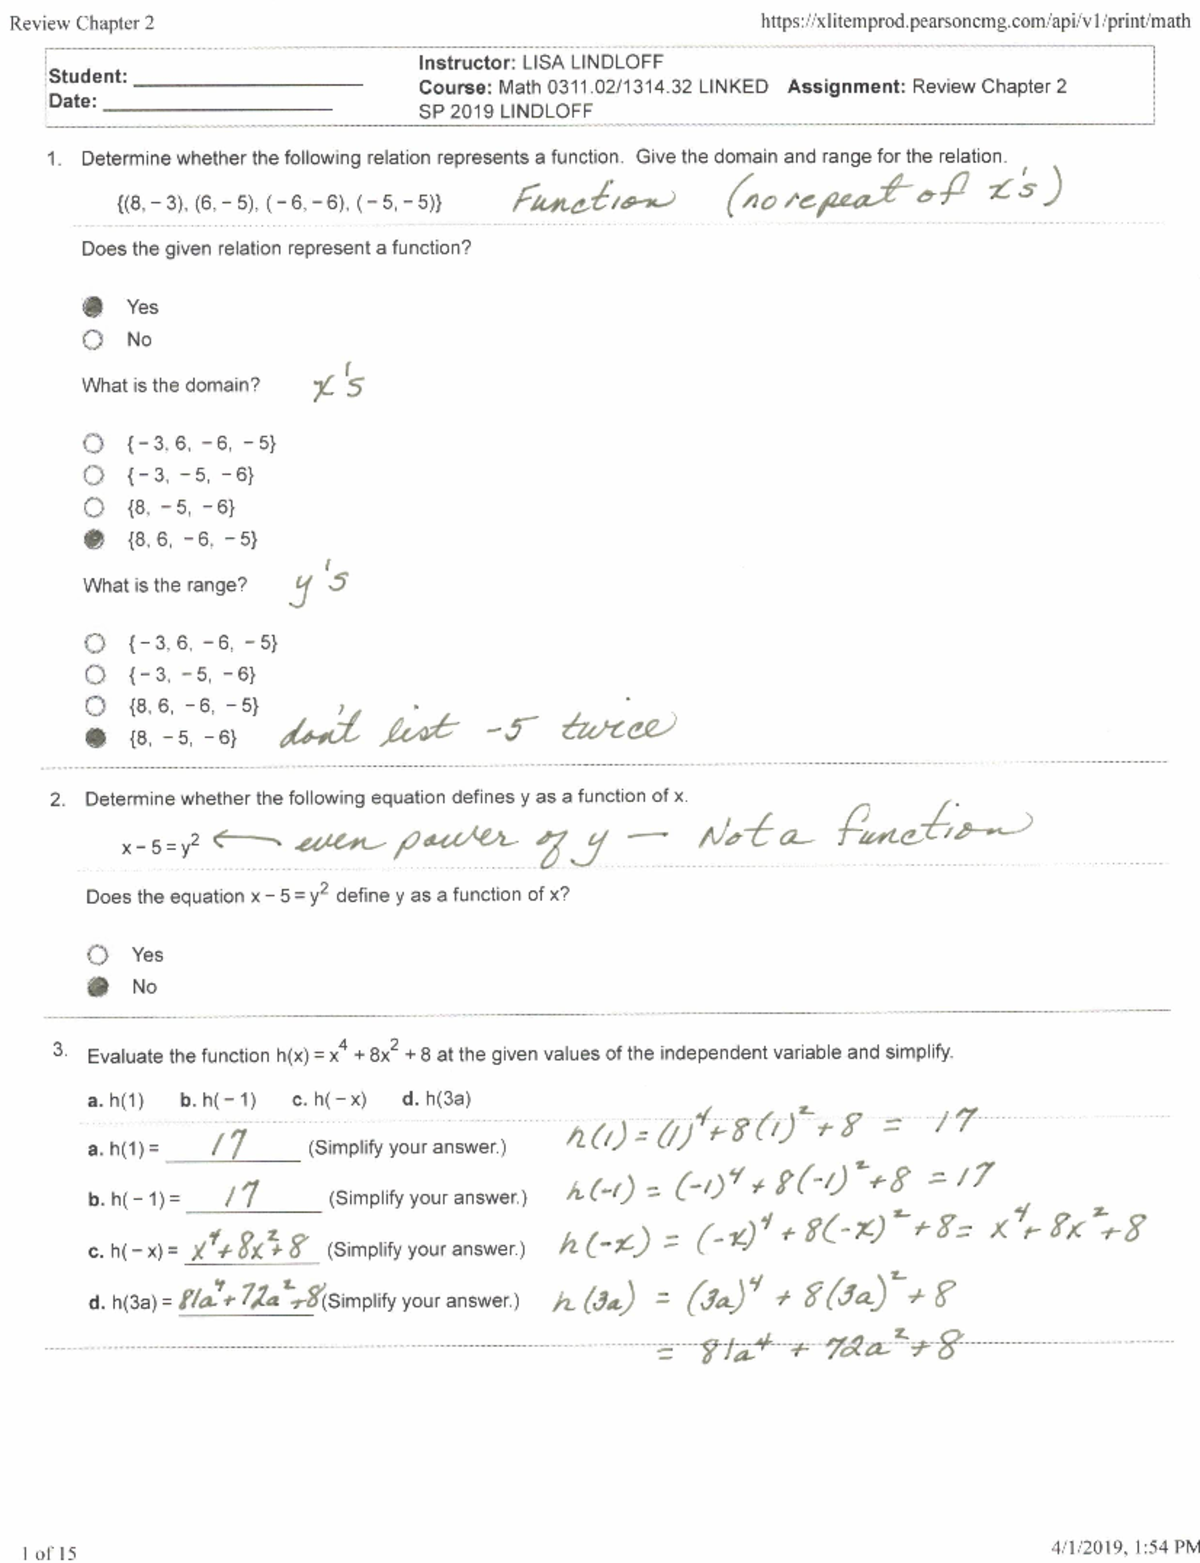 Review Chapter 2 https://xlitemprod.pearsoncmg.com/api/v1/print/math
Student: Instructor: LISA LINDLOFF
Date: Course: Math 0311.02/1314.32 LINKED Assignment: Review Chapter 2
SP 2019 LINDLOFF
1. Determine whether the following relation represents a function. Give the domain and range for the relation.
{(8, − 3), (6, − 5), ( − 6, − 6), ( − 5, − 5)} Function (no repeat of x's)
Does the given relation represent a function?
Yes
No
What is the domain? x's
{ − 3, 6, − 6, − 5}
{ − 3, − 5, − 6}
{8, − 5, − 6}
{8, 6, − 6, − 5}
What is the range? y's
{ − 3, 6, − 6, − 5}
{ − 3, − 5, − 6}
{8, 6, − 6, − 5}
{8, − 5, − 6} don't list -5 twice
2. Determine whether the following equation defines y as a function of x.
x − 5 = y² ← even power of y — Not a function
Does the equation x − 5 = y² define y as a function of x?
Yes
No
3. Evaluate the function h(x) = x⁴ + 8x² + 8 at the given values of the independent variable and simplify.
a. h(1) b. h( − 1) c. h( − x) d. h(3a)
a. h(1) = 17 (Simplify your answer.) h(1) = (1)⁴ + 8(1)² + 8 = 17
b. h( − 1) = 17 (Simplify your answer.) h(-1) = (-1)⁴ + 8(-1)² + 8 = 17
c. h( − x) = x⁴ + 8x² + 8 (Simplify your answer.) h(-x) = (-x)⁴ + 8(-x)² + 8 = x⁴ + 8x² + 8
d. h(3a) = 81a⁴ + 72a² + 8 (Simplify your answer.) h(3a) = (3a)⁴ + 8(3a)² + 8
= 81a⁴ + 72a² + 8
1 of 15 4/1/2019, 1:54 PM